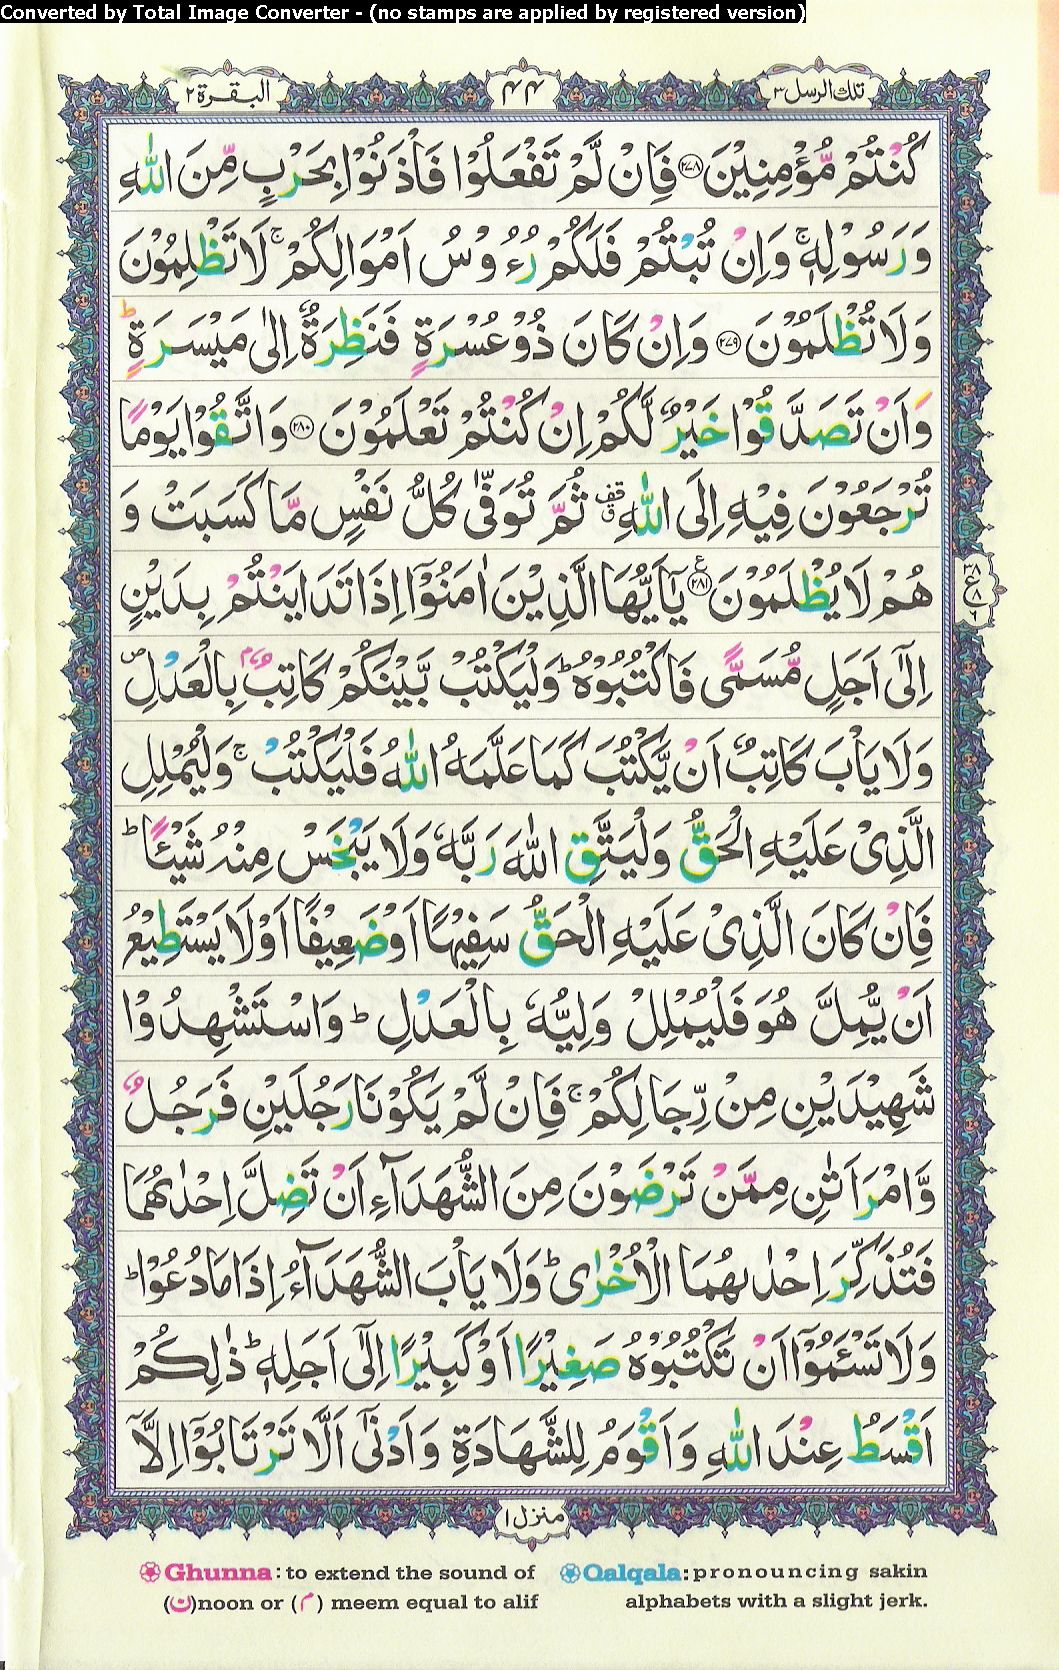 Converted by Total Image Converter - (no stamps are applied by registered version)
تلك الرسل ٣
٤٤
البقرة ٢
كُنْتُمْ مُّؤْمِنِيْنَ ﴿٢٧٨﴾ فَاِنْ لَّمْ تَفْعَلُوْا فَاْذَنُوْا بِحَرْبٍ مِّنَ اللّٰهِ
وَرَسُوْلِهٖ ۚ وَاِنْ تُبْتُمْ فَلَكُمْ رُءُوْسُ اَمْوَالِكُمْ ۚ لَا تَظْلِمُوْنَ
وَلَا تُظْلَمُوْنَ ﴿٢٧٩﴾ وَاِنْ كَانَ ذُوْ عُسْرَةٍ فَنَظِرَةٌ اِلٰى مَيْسَرَةٍ ؕ
وَاَنْ تَصَدَّقُوْا خَيْرٌ لَّكُمْ اِنْ كُنْتُمْ تَعْلَمُوْنَ ﴿٢٨٠﴾ وَاتَّقُوْا يَوْمًا
تُرْجَعُوْنَ فِيْهِ اِلَى اللّٰهِ ۗ ثُمَّ تُوَفّٰى كُلُّ نَفْسٍ مَّا كَسَبَتْ وَ
هُمْ لَا يُظْلَمُوْنَ ﴿٢٨١﴾ يٰۤاَيُّهَا الَّذِيْنَ اٰمَنُوْۤا اِذَا تَدَايَنْتُمْ بِدَيْنٍ
٣٨
ع
٨
٦
اِلٰۤى اَجَلٍ مُّسَمًّى فَاكْتُبُوْهُ ؕ وَلْيَكْتُبْ بَّيْنَكُمْ كَاتِبٌۢ بِالْعَدْلِ ۪
وَلَا يَاْبَ كَاتِبٌ اَنْ يَّكْتُبَ كَمَا عَلَّمَهُ اللّٰهُ فَلْيَكْتُبْ ۚ وَلْيُمْلِلِ
الَّذِيْ عَلَيْهِ الْحَقُّ وَلْيَتَّقِ اللّٰهَ رَبَّهٗ وَلَا يَبْخَسْ مِنْهُ شَيْـًٔا ؕ
فَاِنْ كَانَ الَّذِيْ عَلَيْهِ الْحَقُّ سَفِيْهًا اَوْ ضَعِيْفًا اَوْ لَا يَسْتَطِيْعُ
اَنْ يُّمِلَّ هُوَ فَلْيُمْلِلْ وَلِيُّهٗ بِالْعَدْلِ ؕ وَاسْتَشْهِدُوْا
شَهِيْدَيْنِ مِنْ رِّجَالِكُمْ ۚ فَاِنْ لَّمْ يَكُوْنَا رَجُلَيْنِ فَرَجُلٌ
وَّامْرَاَتٰنِ مِمَّنْ تَرْضَوْنَ مِنَ الشُّهَدَآءِ اَنْ تَضِلَّ اِحْدٰىهُمَا
فَتُذَكِّرَ اِحْدٰىهُمَا الْاُخْرٰى ؕ وَلَا يَاْبَ الشُّهَدَآءُ اِذَا مَا دُعُوْا ؕ
وَلَا تَسْـَٔمُوْۤا اَنْ تَكْتُبُوْهُ صَغِيْرًا اَوْ كَبِيْرًا اِلٰۤى اَجَلِهٖ ؕ ذٰلِكُمْ
اَقْسَطُ عِنْدَ اللّٰهِ وَاَقْوَمُ لِلشَّهَادَةِ وَاَدْنٰۤى اَلَّا تَرْتَابُوْۤا اِلَّاۤ
منزل ١
Ghunna: to extend the sound of
(ن)noon or (م) meem equal to alif
Qalqala: pronouncing sakin
alphabets with a slight jerk.